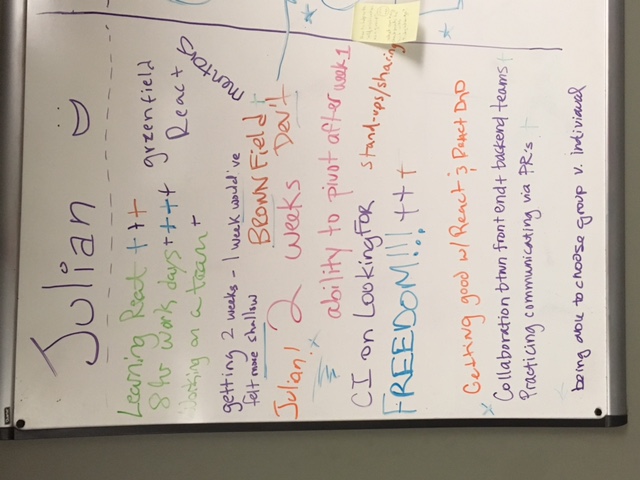 Julian
Learning React +++
greenfield
8hr work days ++++
React
Working on a team +
mentors
getting 2 weeks - 1 week would've
felt more shallow
BROWNField
Dev't
Julian! 2 weeks
ability to pivot after week 1
CI on LookingFOR
stand-ups/sharing
FREEDOM!!! +++
Getting good w/ React & React DnD
Collaboration btwn front end + backend teams +
Practicing communicating via PR's +
being able to choose group v. individual